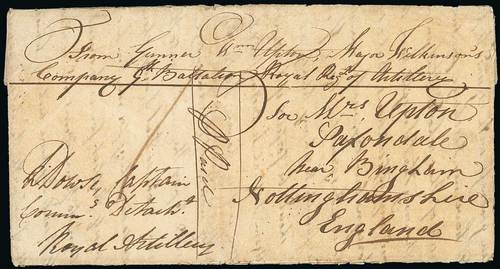 From Gunner Wm Upton, Major Wilkinson's
Company 9th Battalion Royal Regt of Artillery
For Mrs Upton
Saxondale
near Bingham
Nottinghamshire
England
Paid
Dowse, Captain
Comm.s Detach.t
Royal Artillery